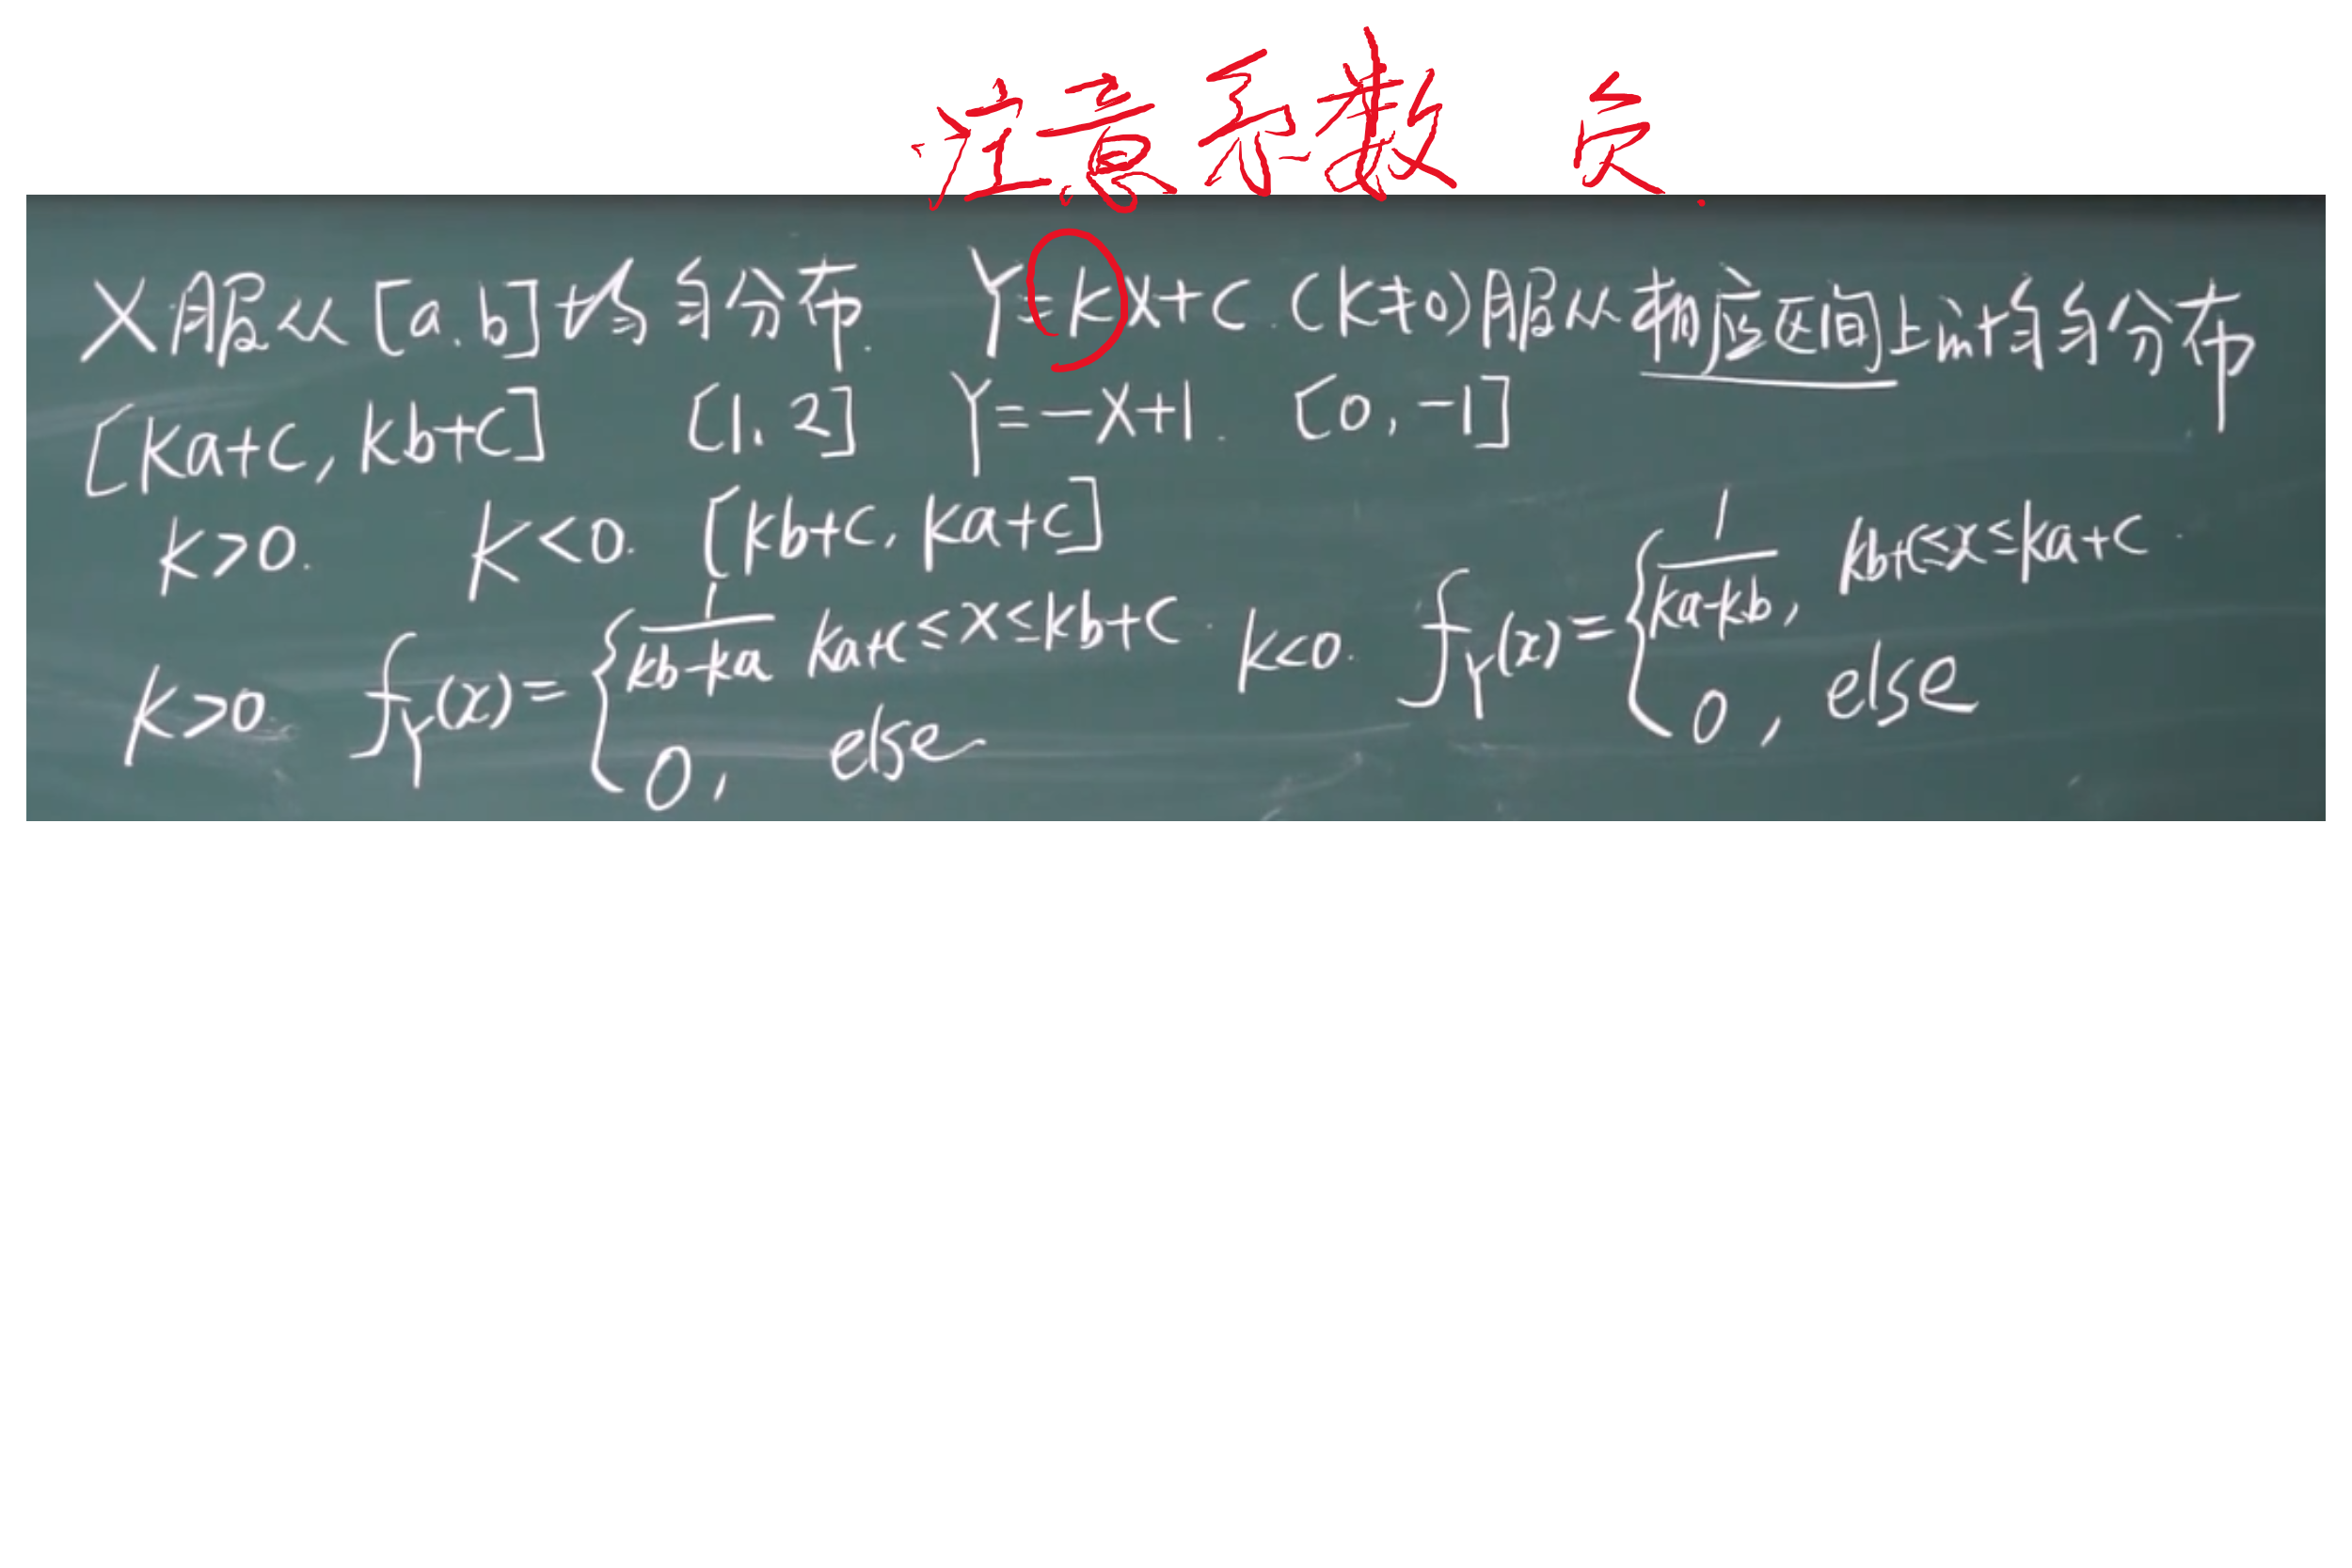 注意系数 负
X服从[a.b]均匀分布. Y=kX+C.(k≠0)服从相应区间上的均匀分布
[ka+C, kb+C] [1.2] Y=-X+1. [0,-1]
k>0. k<0. [kb+C, ka+C]
k>0. f_Y(x)={1/(kb-ka) ka+C≤x≤kb+C. k<0. f_Y(x)={1/(ka-kb), kb+C≤x≤ka+C.
0, else 0, else